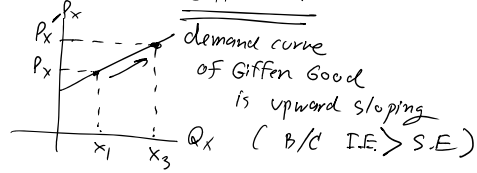 Px
P'x
Px
demand curve
of Giffen Good
is upward sloping
(B/C I.E. > S.E)
x1
x3
Qx